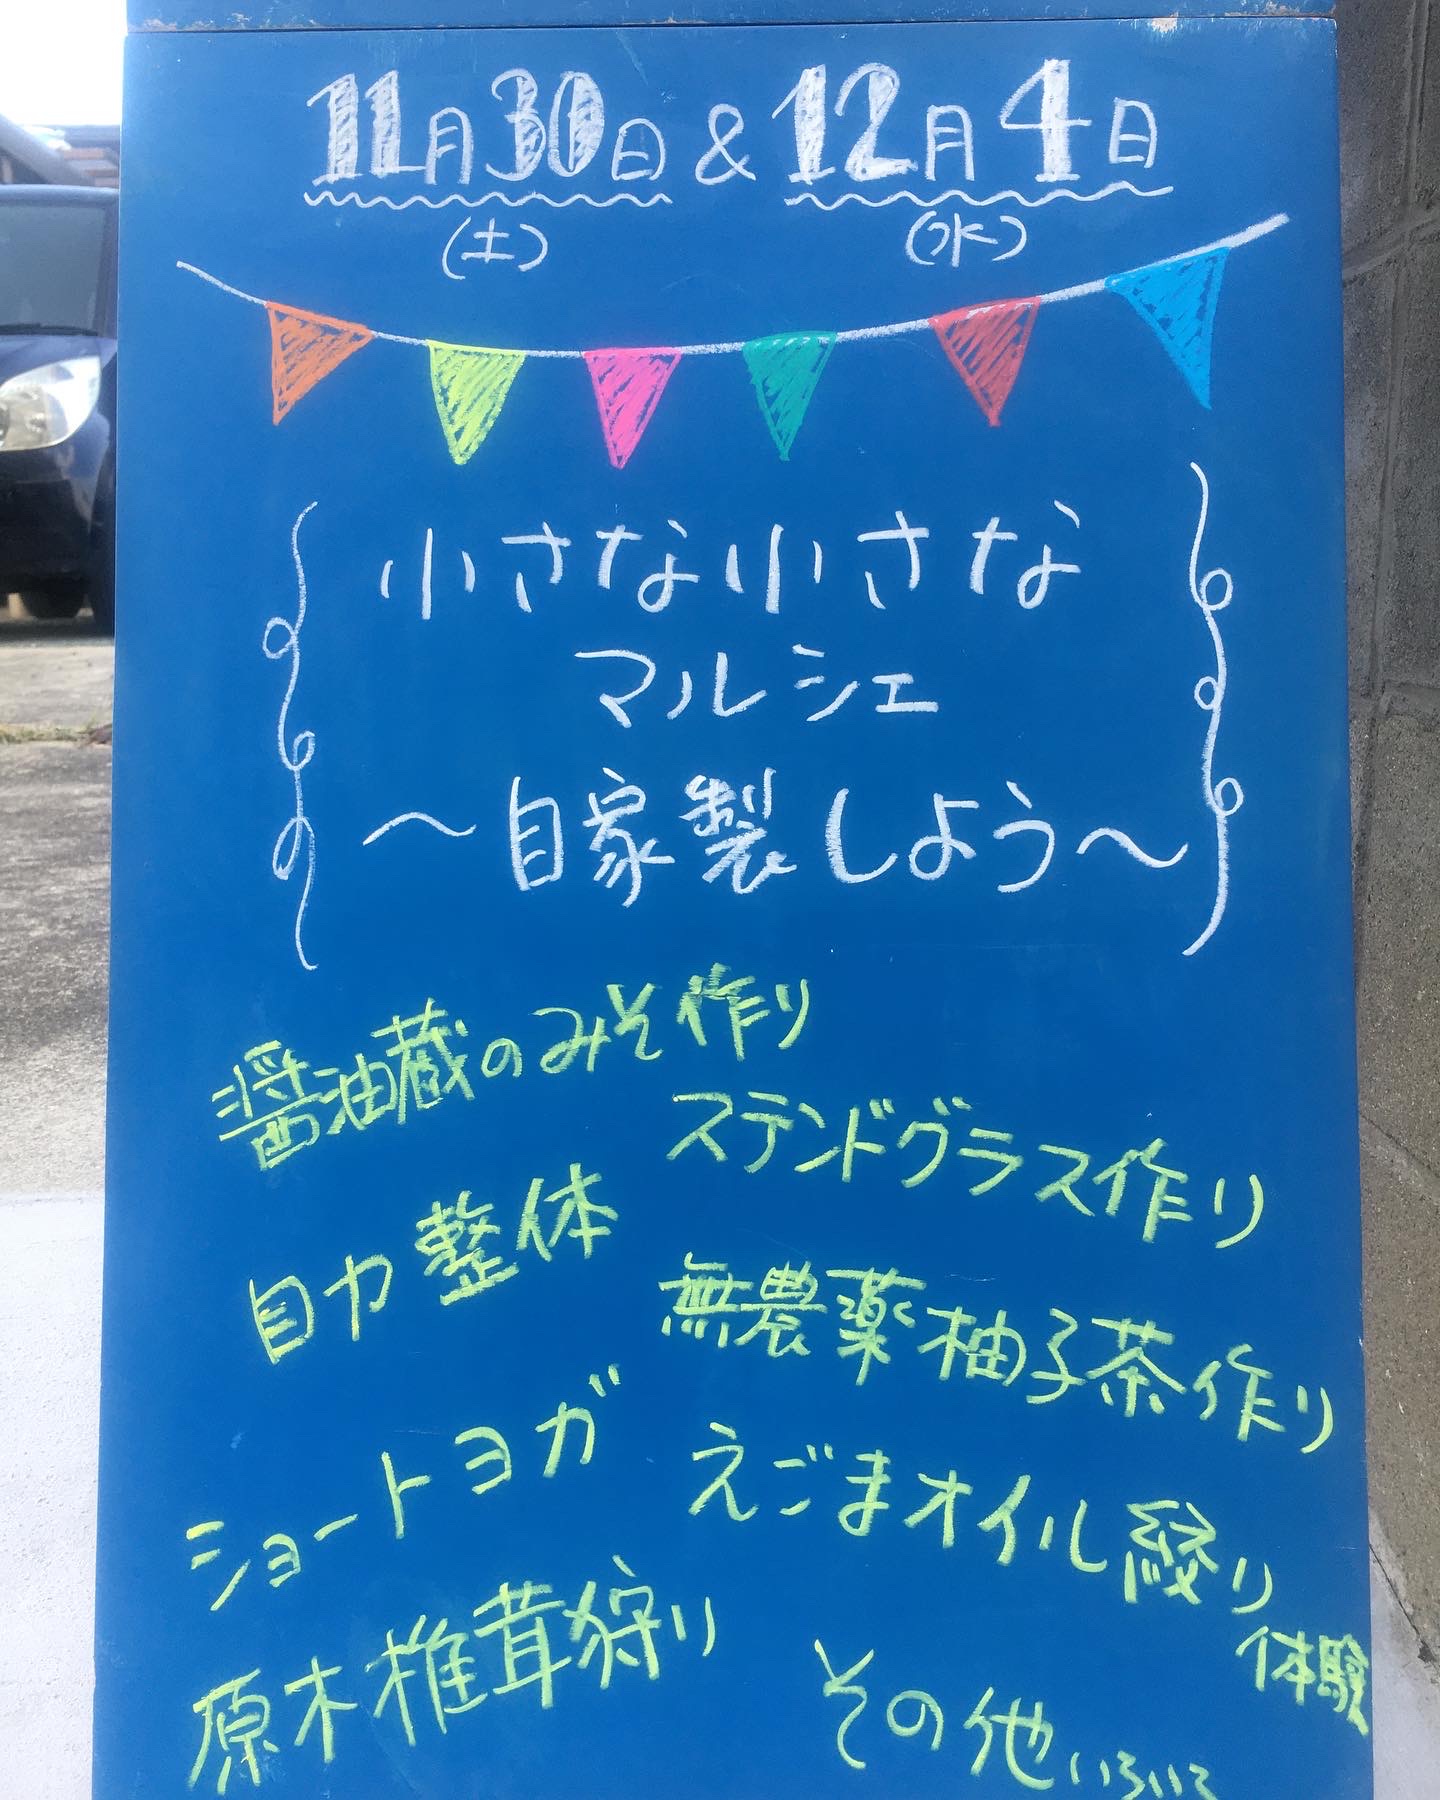 11月30日 & 12月4日
(土) (水)
小さな小さな
マルシェ
～自家製しよう～
醤油蔵のみそ作り
ステンドグラス作り
自力整体
無農薬柚子茶作り
ショートヨガ
えごまオイル絞り
体験
原木椎茸狩り
その他いろいろ